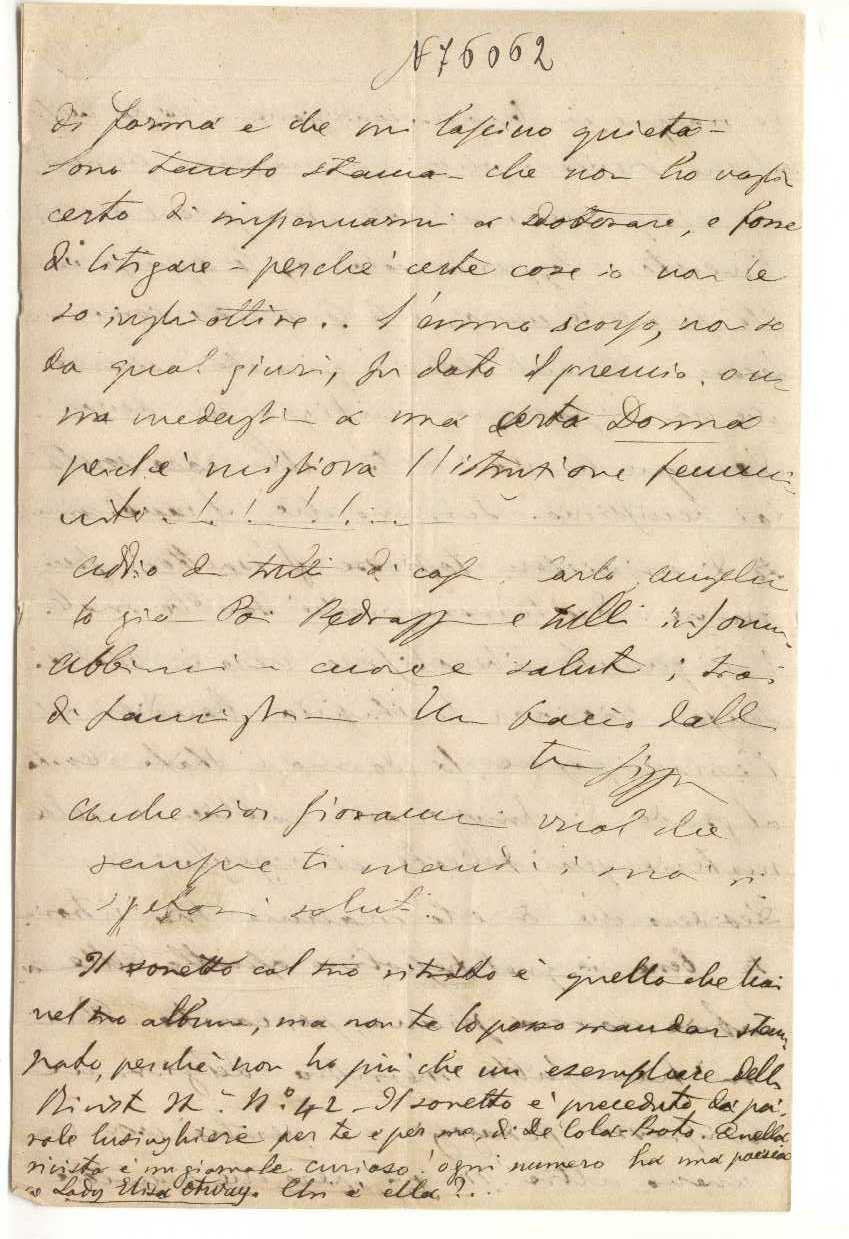 N76062
di forma e che mi lascino quieta -
sono tanto stanca - che non ho voglia
certo di impennarmi a dottorare, e forse
di litigare - perchè certe cose io non le
so inghiottire.. l'anno scorso, non so
da qual giurì, fu dato il premio, o u-
na medaglia a una certa Donna
perchè migliora l'istruzione femmi-
nile!!!!
addio da tutti di casa. Carlo, Angeli-
to Poi e tutti insomma
abbimi cuore e salute i tuoi
di famiglia Un bacio dalla
tua
anche sior Giovanni vuol che
sempre ti mandi i suoi ri-
spettosi saluti.
Il sonetto col tuo ritratto è quello che hai
nel tuo album, ma non te lo posso mandar stam-
pato, perchè non ho più che un esemplare della
Rivista It.ª N.º 42 - Il sonetto è preceduto da pa-
role lusinghiere per te e per me, di De Cola-Proto. Quella
rivista è un giornale curioso! ogni numero ha una poesia
a Lady Elisa Otway. Chi è ella?..